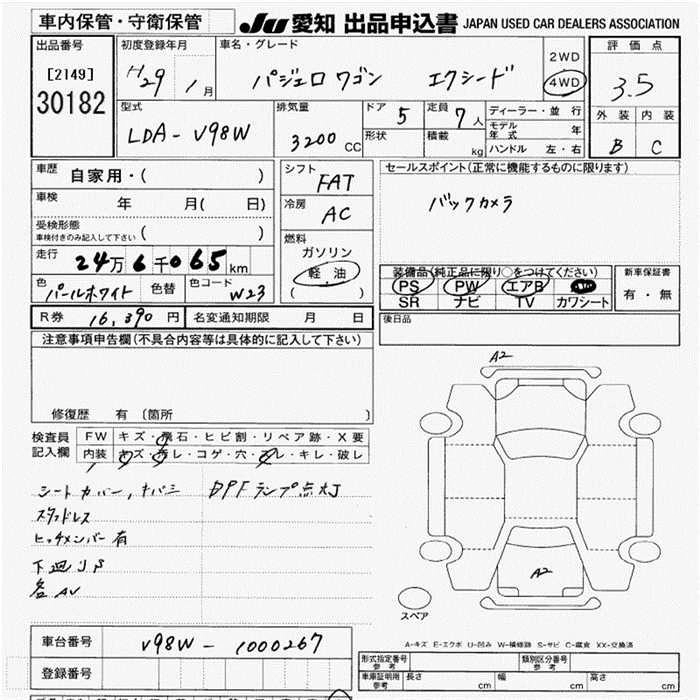 車内保管・守衛保管
JU 愛知 出品申込書 JAPAN USED CAR DEALERS ASSOCIATION
出品番号
[2149]
30182
初度登録年月
H29 1月
車名・グレード
パジェロ ワゴン エクシード
2WD
4WD
評価点
3.5
外装 内装
B C
型式
LDA-V98W
排気量
3200 CC
ドア 5
形状
定員 7人
積載 kg
ディーラー・並行
モデル年式 年
ハンドル 左・右
車歴 自家用・( )
車検 年 月( 日)
受検形態
車検付きのみ記入して下さい ( )
走行 24万6千065 km
色 パールホワイト 色替 色コード W23
R券 16,390 円 名変通知期限 月 日
シフト FAT
冷房 AC
燃料
ガソリン
軽油
( )
セールスポイント(正常に機能するものに限ります)
バックカメラ
装備品(純正品に限り○をつけてください)
PS PW エアB
SR ナビ TV カワシート
新車保証書
有・無
後日品
注意事項申告欄(不具合内容等は具体的に記入して下さい)
修復歴 有 〔箇所 〕
検査員記入欄
FW キズ・飛石・ヒビ割・リペア跡・X要
内装 キズ・汚レ・コゲ・穴・スレ・キレ・破レ
シートカバー, ナバミ DPFランプ点灯
スタッドレス
ヒッチメンバー有
下廻りS
各AU
A2
A2
スペア
A-キズ E-エクボ U-凹み W-補修跡 S-サビ C-腐食 XX-交換済
車台番号 V98W-1000267
登録番号
形式指定番号 参考
類別区分番号 参考
車庫証明用 参考 長さ cm 幅 cm 高さ cm